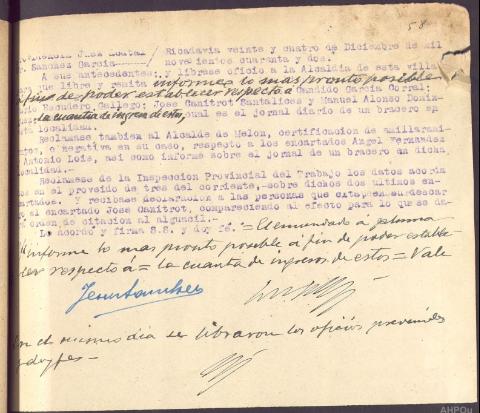 58
Providencia Juez Acctal / Ricadavia veinte y cuatro de Diciembre de mil
Sr. Sanchez Garcia------/ novecientos cuaranta y dos.
A sus antecedentes; y librase oficio a la Alcaldia de esta villa
que libre y remita informes lo mas pronto posible
a fin de poder establecer respecto á Candido Garcia Corral;
Escudero Gallego; Jose Canitrot Santalices y Manuel Alonso Domin-
la cuantia de ingresos de estos, cual es el jornal diario de un bracero en
esta localidad.
Reclamase tambien al Alcalde de Melon, certificacion de amillarami-
negativa en su caso, respecto a los encartados Angel Fernandez
Antonio Lois, asi como informe sobre el jornal de un bracero an dicha
localidad.-
Reclamese de la Inspeccion Provincial del Trabajo los datos acorda
en el proveido de tres del corriente,-sobre dichos dos ultimos en-
cartados. Y recibase declaracion a las personas que
el encartado Jose Canitrot, compareciendo al efecto para lo que se da-
orden de citacion al alguacil.-
Lo acordó y firma S.S. y doy fé. = Enmendado á pluma
"informe lo mas pronto posible a fin de poder estable-
cer respectó á = la cuanta de ingresos de estos = Vale
En el mismo dia se libraron los oficios prevenidos
doy fe =
AHPOu